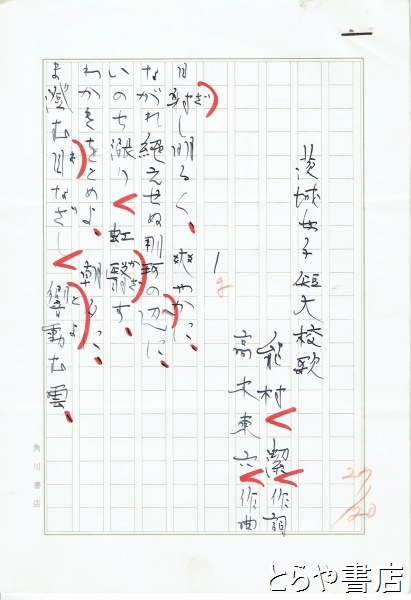 茨城女子短大校歌
能村 潔 作詞
高木東六 作曲
1
日射し明るく、爽やかに、
ながれ絶えせぬ那珂の辺に、
いのち漲り 虹翳す。
わかきをとめよ、朝夕に、
ま澄む目なざし 響動む雲、
角川書店
27/20
とらや書店